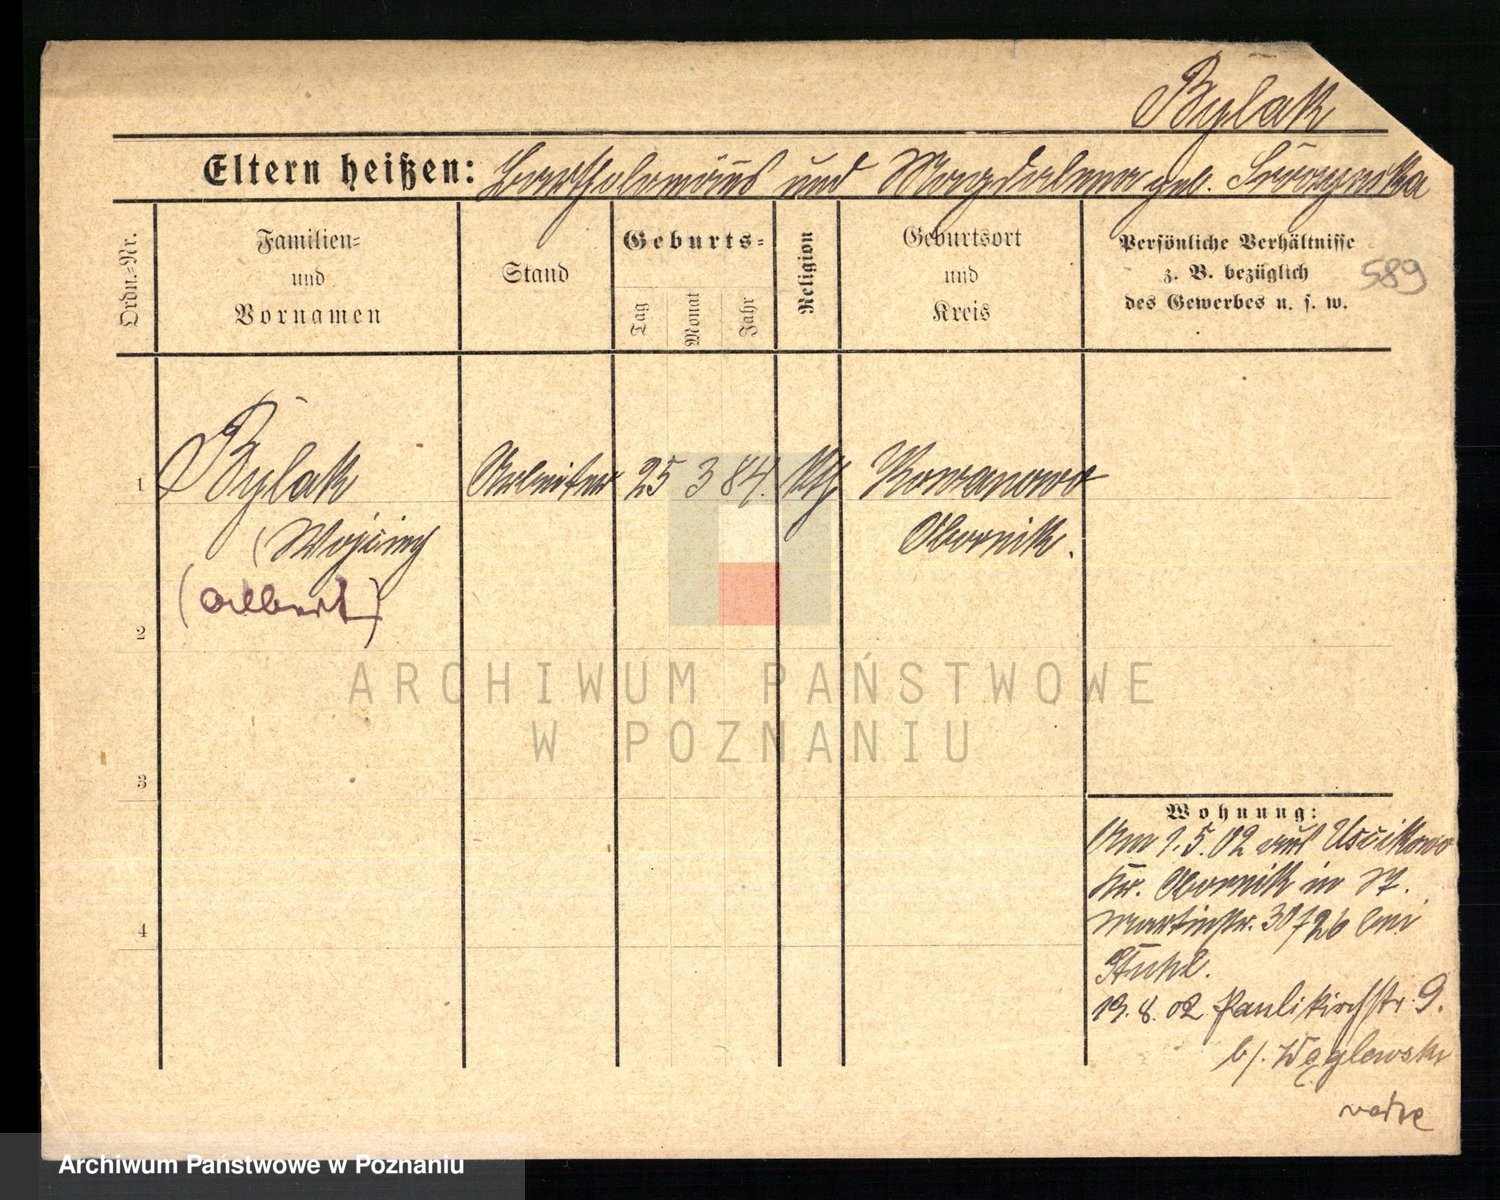 Bylak
Eltern heißen: Bartholomäus und Magdalena geb.
Ordn.=Nr.
Familien=
und
Vornamen
Stand
Geburts=
Tag
Monat
Jahr
Religion
Geburtsort
und
Kreis
Persönliche Verhältnisse
z. B. bezüglich
des Gewerbes u. s. w.
589
1
Bylak
Arbeiter
25 3 84.
Kth
Kowanowo
(
Obornik.
(Albert)
2
3
4
Wohnung:
Am 1.5.02 aus Uscikowo
Kr. Obornik in St.
Martinstr. 30/26 bei
Stuhl.
13.8.02 Paulikirchstr. 9.
b/. Węglewski
ARCHIWUM PAŃSTWOWE
W POZNANIU
Archiwum Państwowe w Poznaniu